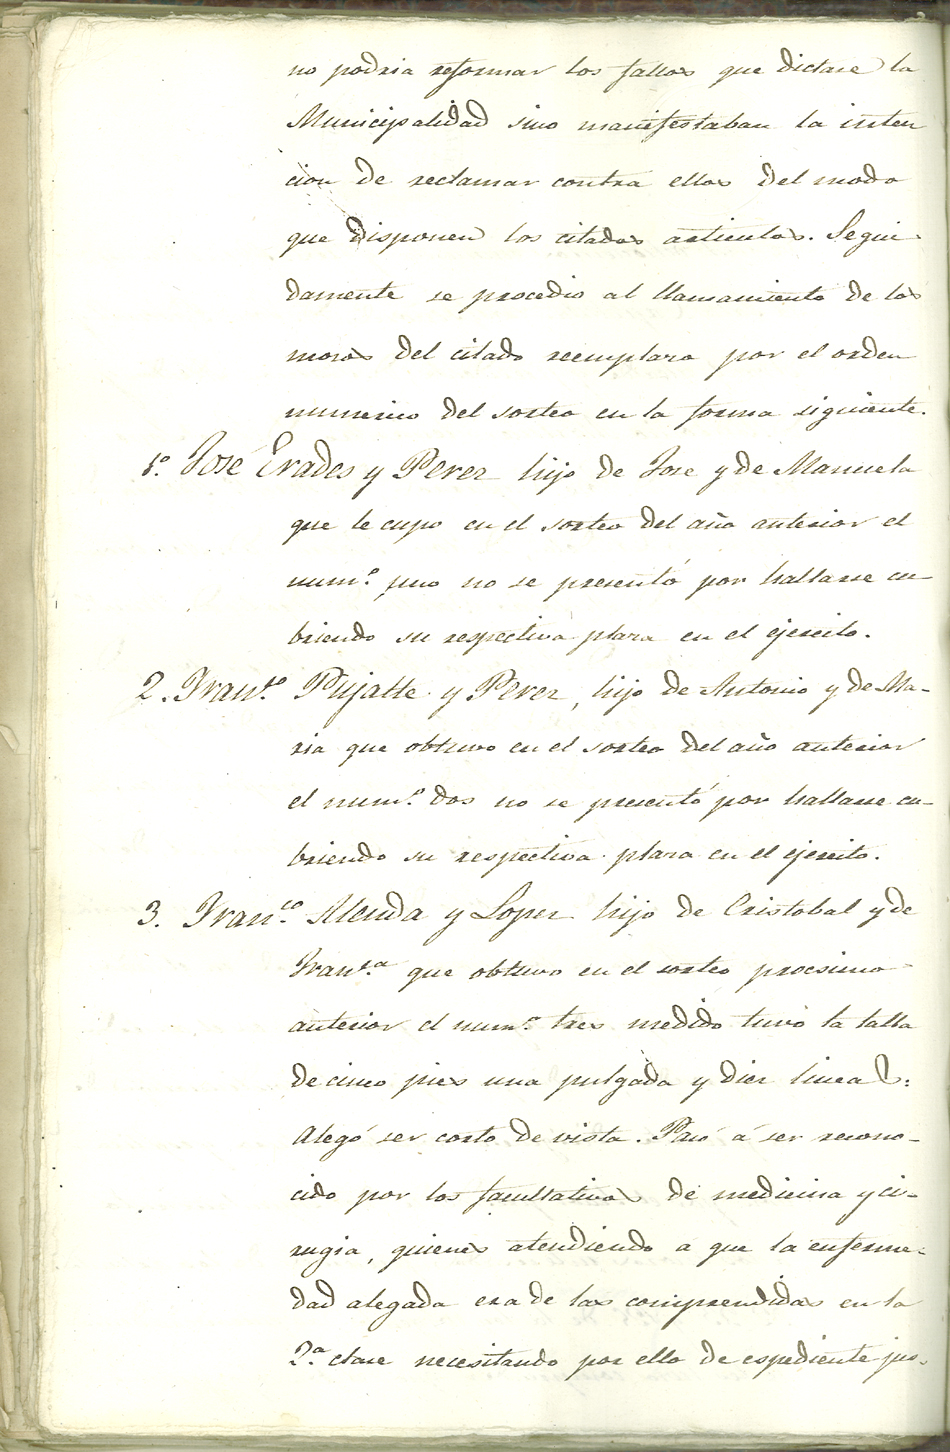 no podria reformar los fallos que dictare la
Municipalidad sino manifestaban la inten
cion de reclamar contra ellos del modo
que disponen los citados articulos. Segui-
damente se procedio al llamamiento de los
mozos del citado reemplazo por el orden
numerico del sorteo en la forma siguiente.
1º. José Erades y Perez hijo de Jose y de Manuela
que le cupo en el sorteo del año anterior el
num.º uno no se presentó por hallarse cu-
briendo su respectiva plaza en el ejercito.
2. Fran.co Pujalte y Perez, hijo de Antonio y de Ma-
ria que obtuvo en el sorteo del año anterior
el num.º dos no se presentó por hallarse cu-
briendo su respectiva plaza en el ejercito.
3. Fran.co Alenda y Lopez hijo de Cristobal y de
Fran.ca que obtuvo en el sorteo procsimo
anterior el num.º tres medido tuvo la talla
de cinco pies una pulgada y diez lineas:
Alegó ser corto de vista. Pasó á ser recono-
cido por los facultativos de medicina y ci-
rugia, quienes atendiendo a que la enferme-
dad alegada era de las comprendidas en la
2.ª clase necesitando por ello de espediente jus-